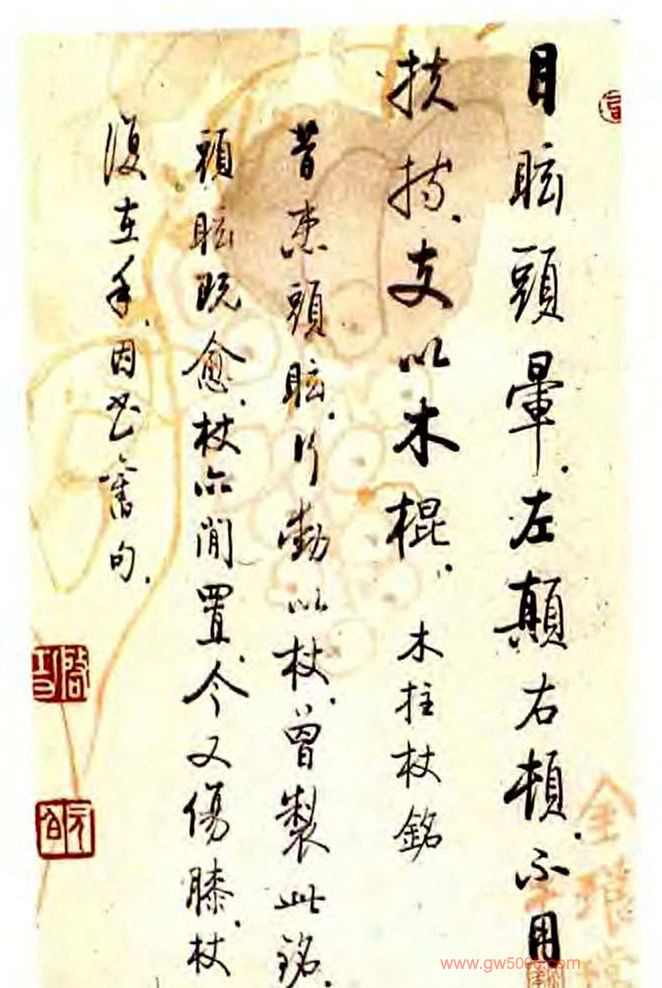 目眩頭暈。左顛右頓。不用
扶持。支以木棍。木拄杖銘
昔患頭眩。行動以杖。曾製此銘。
頭眩既愈。杖亦閒置。今又傷膝。杖
復在手。因書舊句。
启功
元白
www.gw5000.com